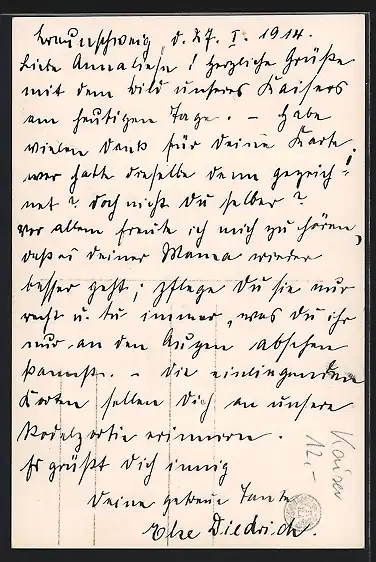 Braunschweig, d. 27. I. 1914.
Liebe Annaliese! Herzliche Grüße
mit dem Bild unseres Kaisers
am heutigen Tage. – Habe
vielen Dank für Deine Karte,
wer hatte dieselbe denn gezeich=
net? Doch nicht Du selber?!
Vor allem freute ich mich zu hören,
daß es Deiner Mama wieder
besser geht; pflege Du sie nur
recht u. tu immer, was Du ihr
nur an den Augen absehen
kannst. – Die einliegenden
Karten sollen Dich an unsere
Rodelpartie erinnern.
Es grüßt Dich innig
Deine getreue Tante
Else Diedrich.
Kaiser
12.-